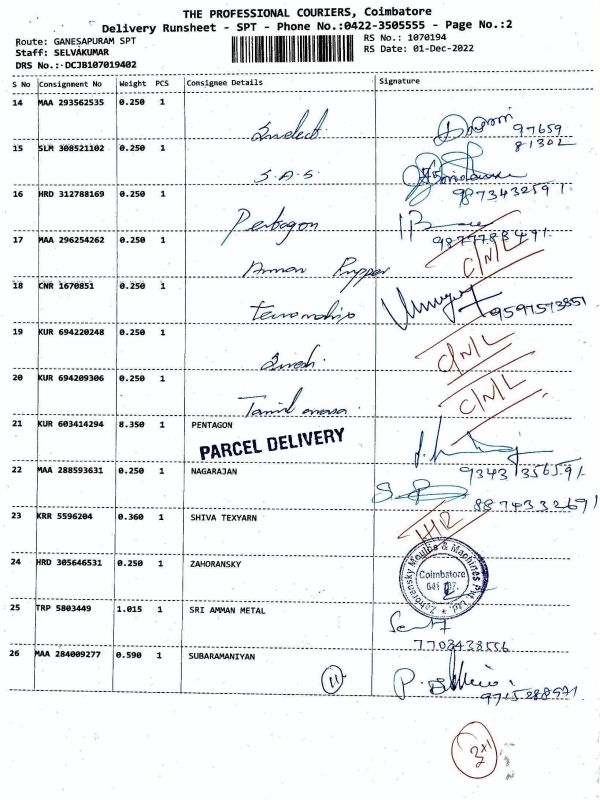 THE PROFESSIONAL COURIERS, Coimbatore
Delivery Runsheet - SPT - Phone No.:0422-3505555 - Page No.:2
Route: GANESAPURAM SPT
Staff: SELVAKUMAR
DRS No.: DCJB107019402
RS No.: 1070194
RS Date: 01-Dec-2022
S No Consignment No Weight PCS Consignee Details Signature
14 MAA 293562535 0.250 1
97659
81302
15 SLM 308521102 0.250 1 S.A.S
9873432591.
16 HRD 312788169 0.250 1 Pentagon
17 MAA 296254262 0.250 1 Amman C/N/L
18 CNR 1670851 0.250 1
9597573851
19 KUR 694220248 0.250 1 C/N/L
20 KUR 694209306 0.250 1 Tamil C/N/L
21 KUR 603414294 8.350 1 PENTAGON
PARCEL DELIVERY
22 MAA 288593631 0.250 1 NAGARAJAN
8874332691
23 KRR 5596204 0.360 1 SHIVA TEXYARN H/R
24 HRD 305646531 0.250 1 ZAHORANSKY
Zahoransky Moulds & Machines Pvt. Ltd.
Coimbatore
25 TRP 5803449 1.015 1 SRI AMMAN METAL
7703438556
26 MAA 284009277 0.590 1 SUBARAMANIYAN
11